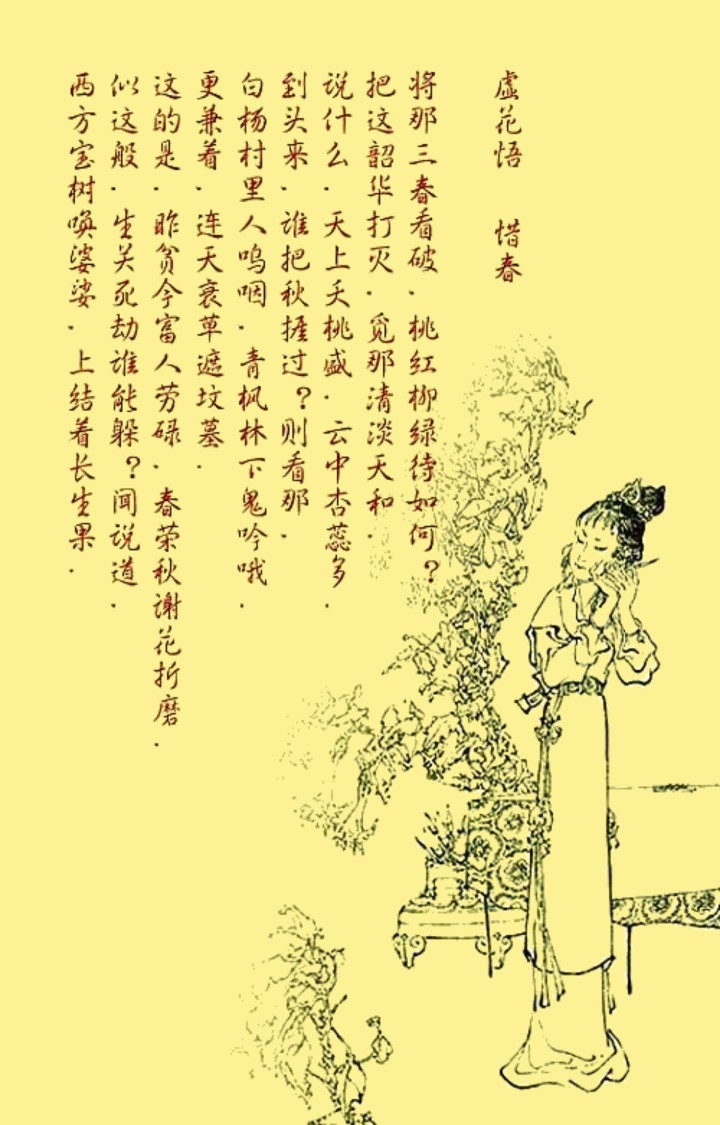 虚花悟 惜春
将那三春看破.桃红柳绿待如何?
把这韶华打灭.觅那清淡天和.
说什么.天上夭桃盛.云中杏蕊多.
到头来.谁把秋捱过?则看那.
白杨村里人呜咽.青枫林下鬼吟哦.
更兼着.连天衰草遮坟墓.
这的是.昨贫今富人劳碌.春荣秋谢花折磨.
似这般.生关死劫谁能躲?闻说道.
西方宝树唤婆娑.上结着长生果.